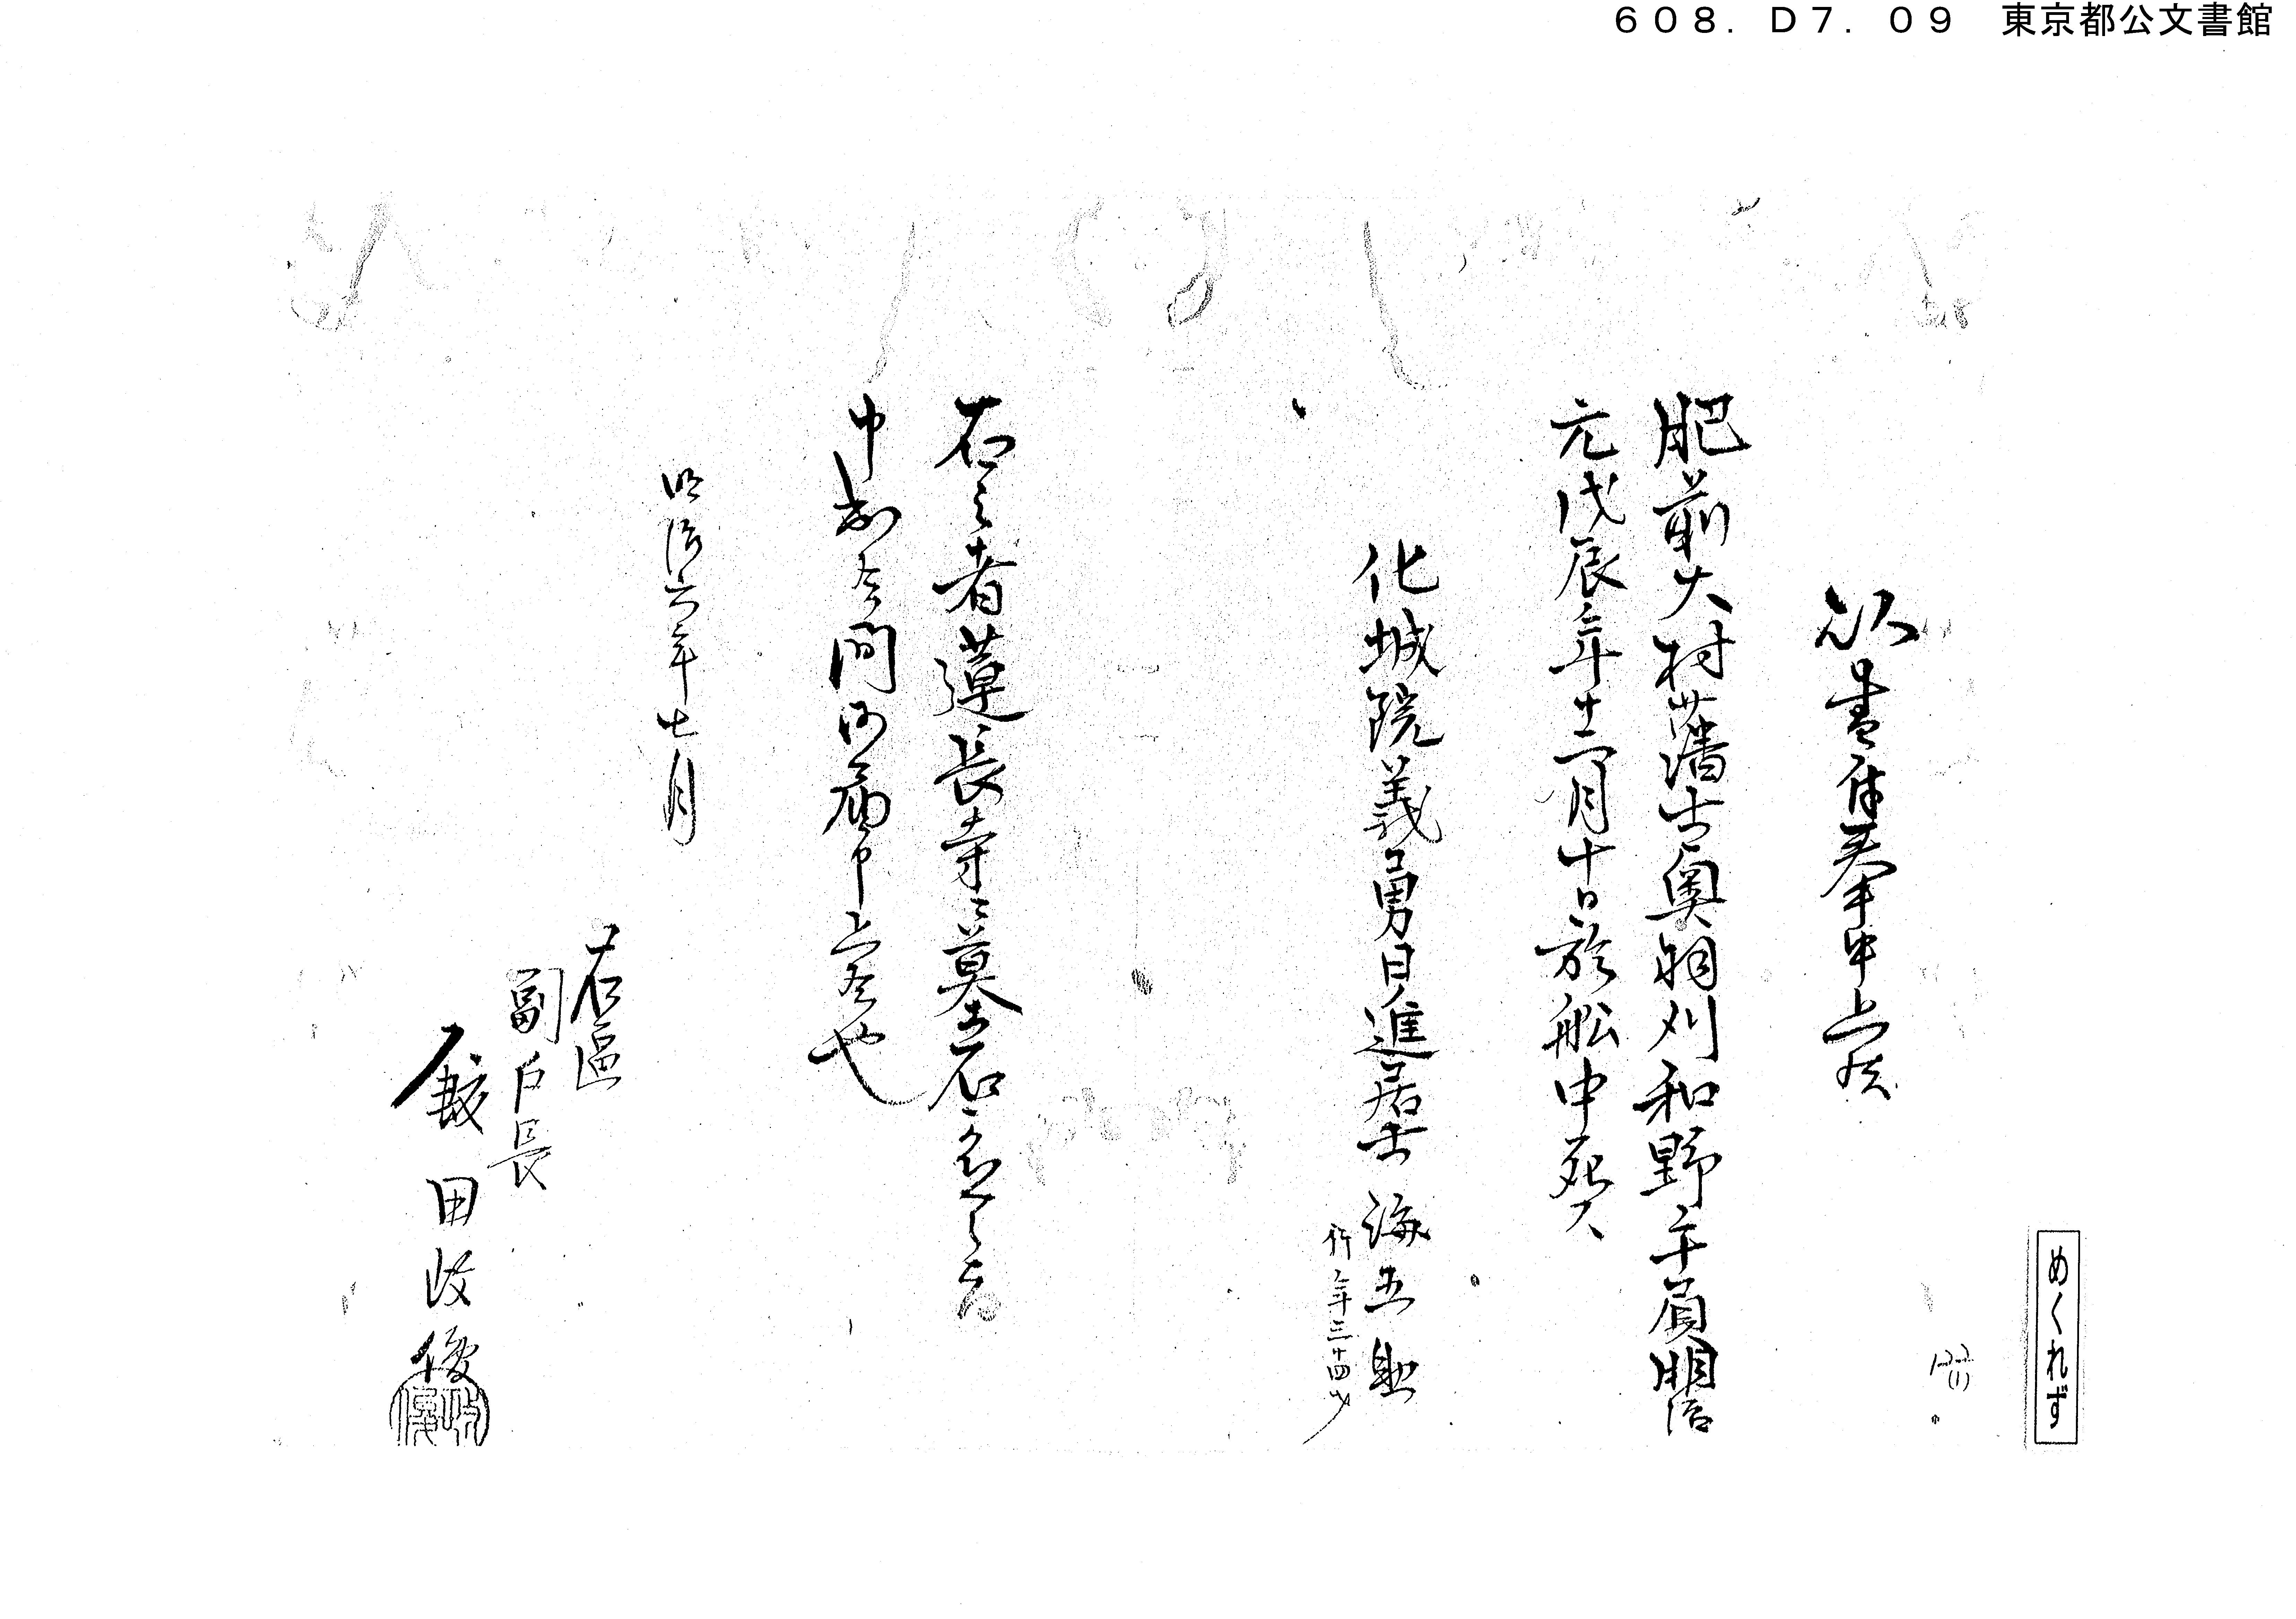 608. D7. 09 東京都公文書館
以書付奉申上候
肥前大村藩士奥羽刈和野ニ于肩明治
元戊辰年十二月十日於舩中死ス
化城院義勇日進居士 海五
行年三十四才
右之者蓮長寺ニ墓石有之
申候間御届申上候也
明治六年七月
右區
副戸長
田政優
めくれず